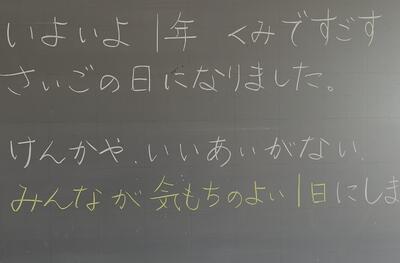 いよいよ1年 くみですごす
さいごの日になりました。
けんかや、いいあいがない、
みんなが気もちのよい1日にしま